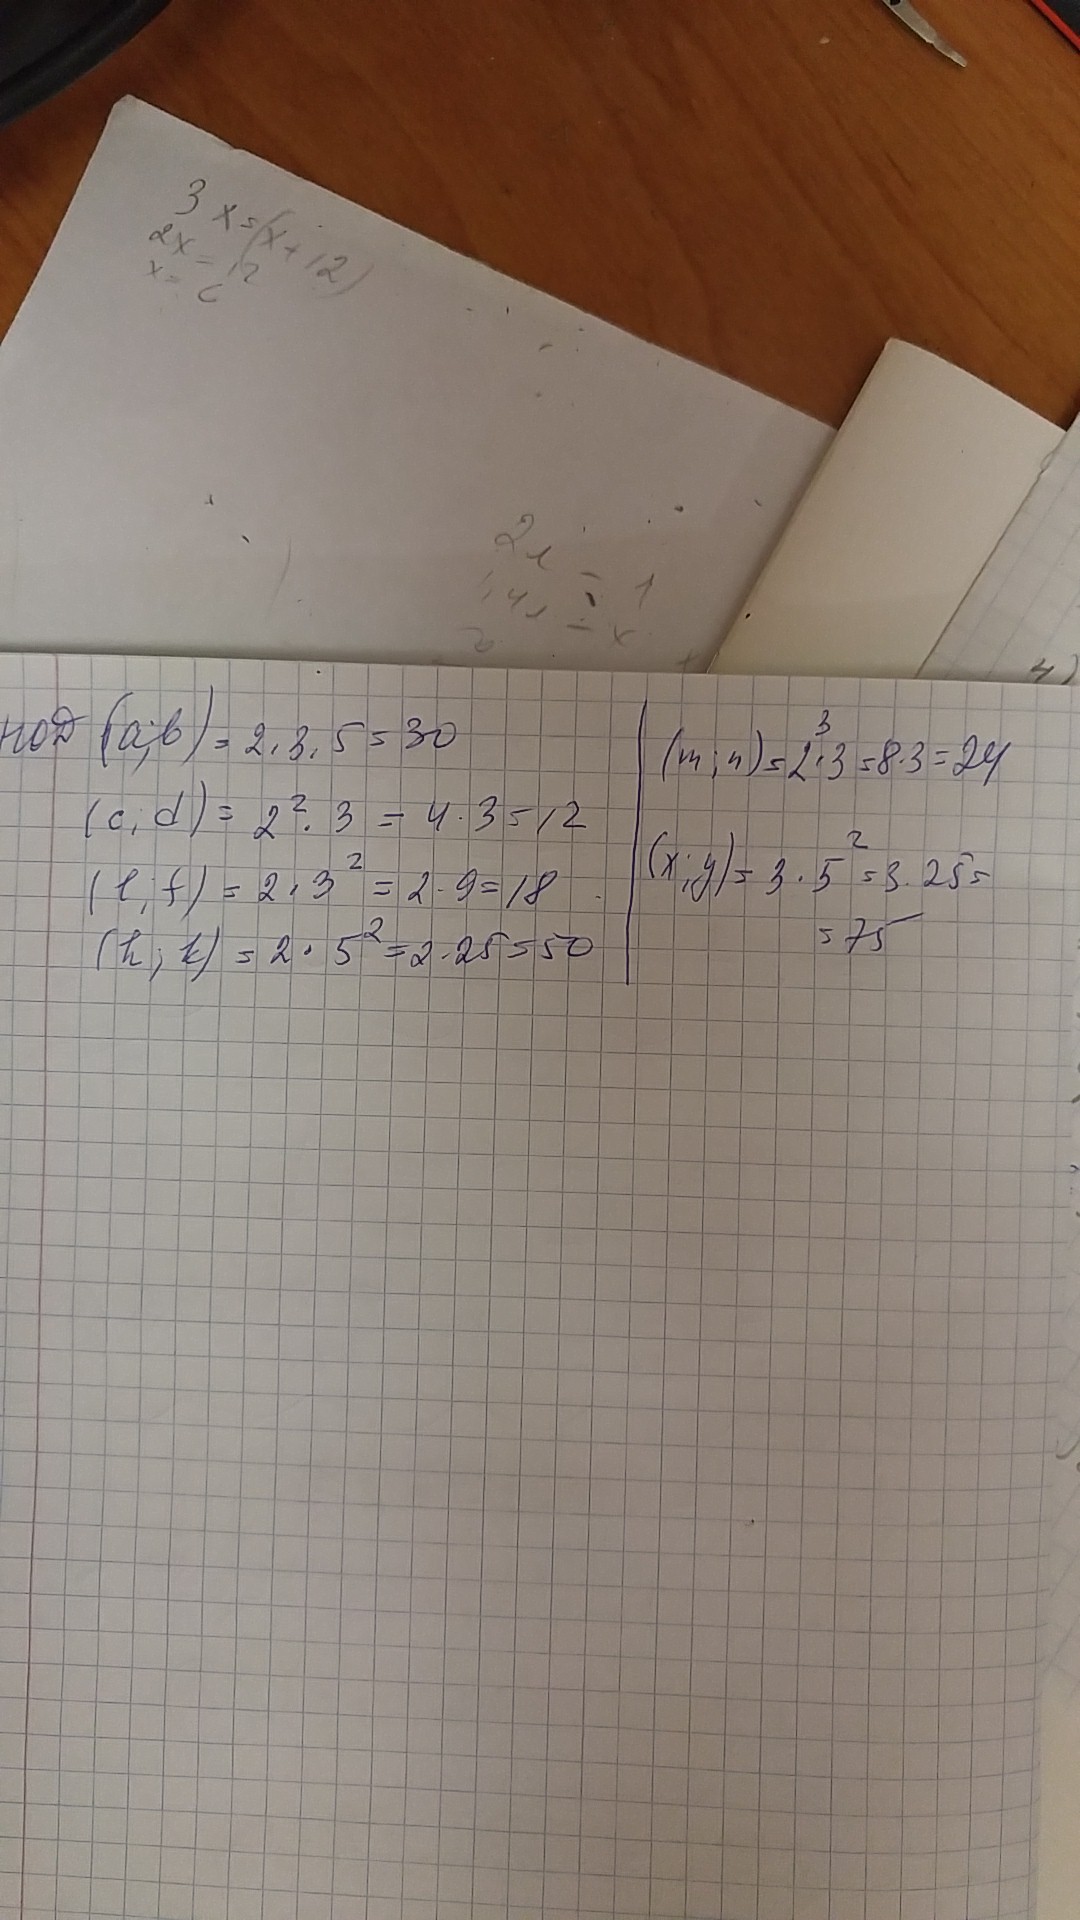 3x=(x+12)
2x=12
x=6
2x = 1
НОД (a;b) = 2.3.5=30
(c,d) = 2². 3 = 4.3=12
(l;f) = 2.3² = 2.9=18
(h;k) = 2. 5²=2.25=50
(m;n)=2³.3=8.3=24
(x;y)= 3.5² =3.25=
=75
4)